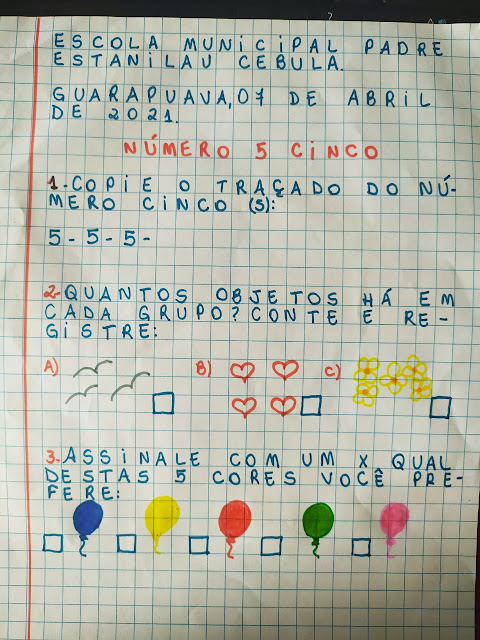 ESCOLA MUNICIPAL PADRE
ESTANILAU CEBULA.
GUARAPUAVA, 07 DE ABRIL
DE 2021.
NÚMERO 5 CINCO
1-COPIE O TRAÇADO DO NÚ-
MERO CINCO (5):
5-5-5-
2-QUANTOS OBJETOS HÁ EM
CADA GRUPO? CONTE E RE-
GISTRE:
A) B) C)
3-ASSINALE COM UM X QUAL
DESTAS 5 CORES VOCÊ PRE-
FERE: